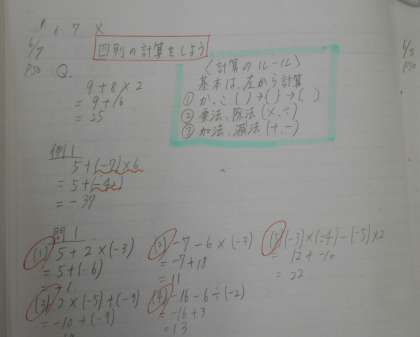 6/7
P50
四則の計算をしよう
Q.
9+8×2
=9+16
=25
〈計算のルール〉
基本は、左から計算
① かっこ ( )→{ }→[ ]
② 乗法、除法(×,÷)
③ 加法、減法(+,-)
例1
5+(-7)×6
=5+(-42)
=-37
問1
(1) 5+2×(-3)
=5+(-6)
=-1
(2) -7-6×(-3)
=-7+18
=11
(-3)×(-4)-(-5)×2
=
=22
(3) 2×(-5)+(-9)
=-10+(-9)
(4) -16-6÷(-2)
=-16+3